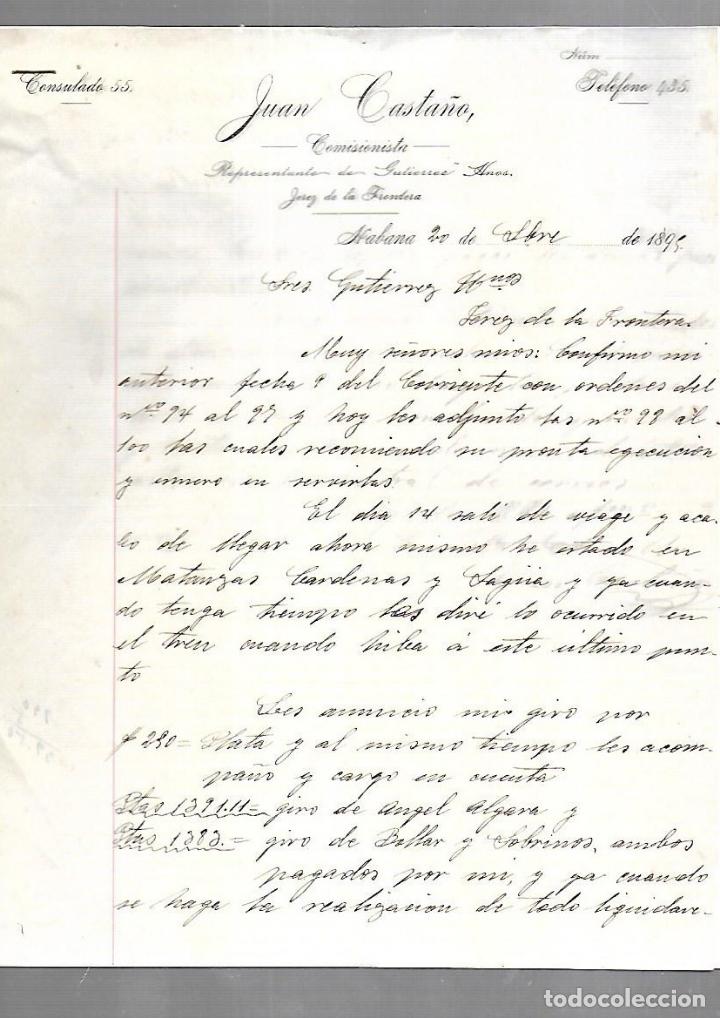 Núm
Consulado 55.
Teléfono 435.
Juan Castaño,
Comisionista
Representante de Gutierrez Hnos.
Jerez de la Frontera
Habana 20 de Sbre de 1895
Sres. Gutierrez Hnos
Jerez de la Frontera.
Muy señores mios: Confirmo mi
anterior fecha 9 del Corriente con ordenes del
nros 94 al 97 y hoy les adjunto las nros 98 al
100 las cuales recomiendo su pronta egecucion
y esmero en servirlas.
El dia 14 sali de viage y aca-
bo de llegar ahora mismo he estado en
Matanzas Cardenas y Sagüa y ya cuan-
do tenga tiempo les diré lo ocurrido en
el tren cuando hiba á este ultimo pun-
to
Les anuncio mi giro por
$ 290= Plata y al mismo tiempo les acom-
paño y cargo en cuenta
Ptas 1391.11= giro de Angel Algara y
Ptas 1383.= giro de Ballar y Sobrinos, ambos
pagados por mi, y ya cuando
se haga la realizacion de todo liquidare-
todocoleccion.net